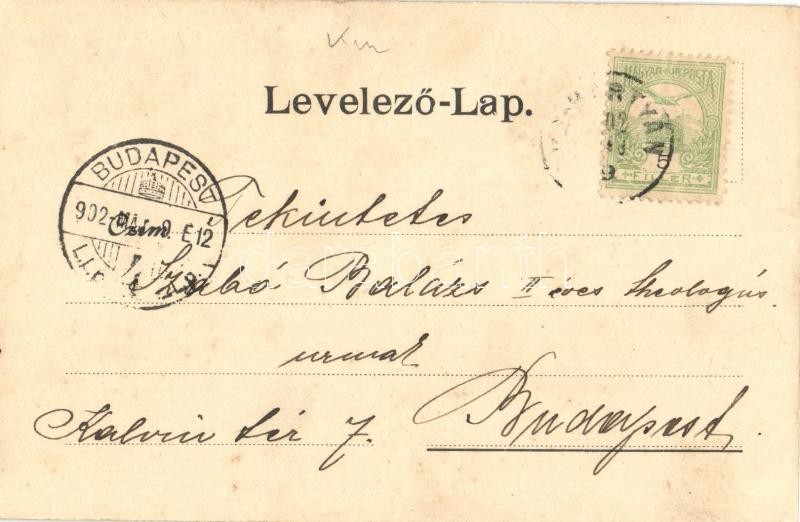 Levelező-Lap.
MAGYAR KIR. POSTA
5
FILLÉR
BUDAPEST
902 MÁJ. 9 É 12
Czím.
Tekintetes
Szabó Balázs II éves theologus
urnak
Kalvin tér 7. Budapest.
darabanth